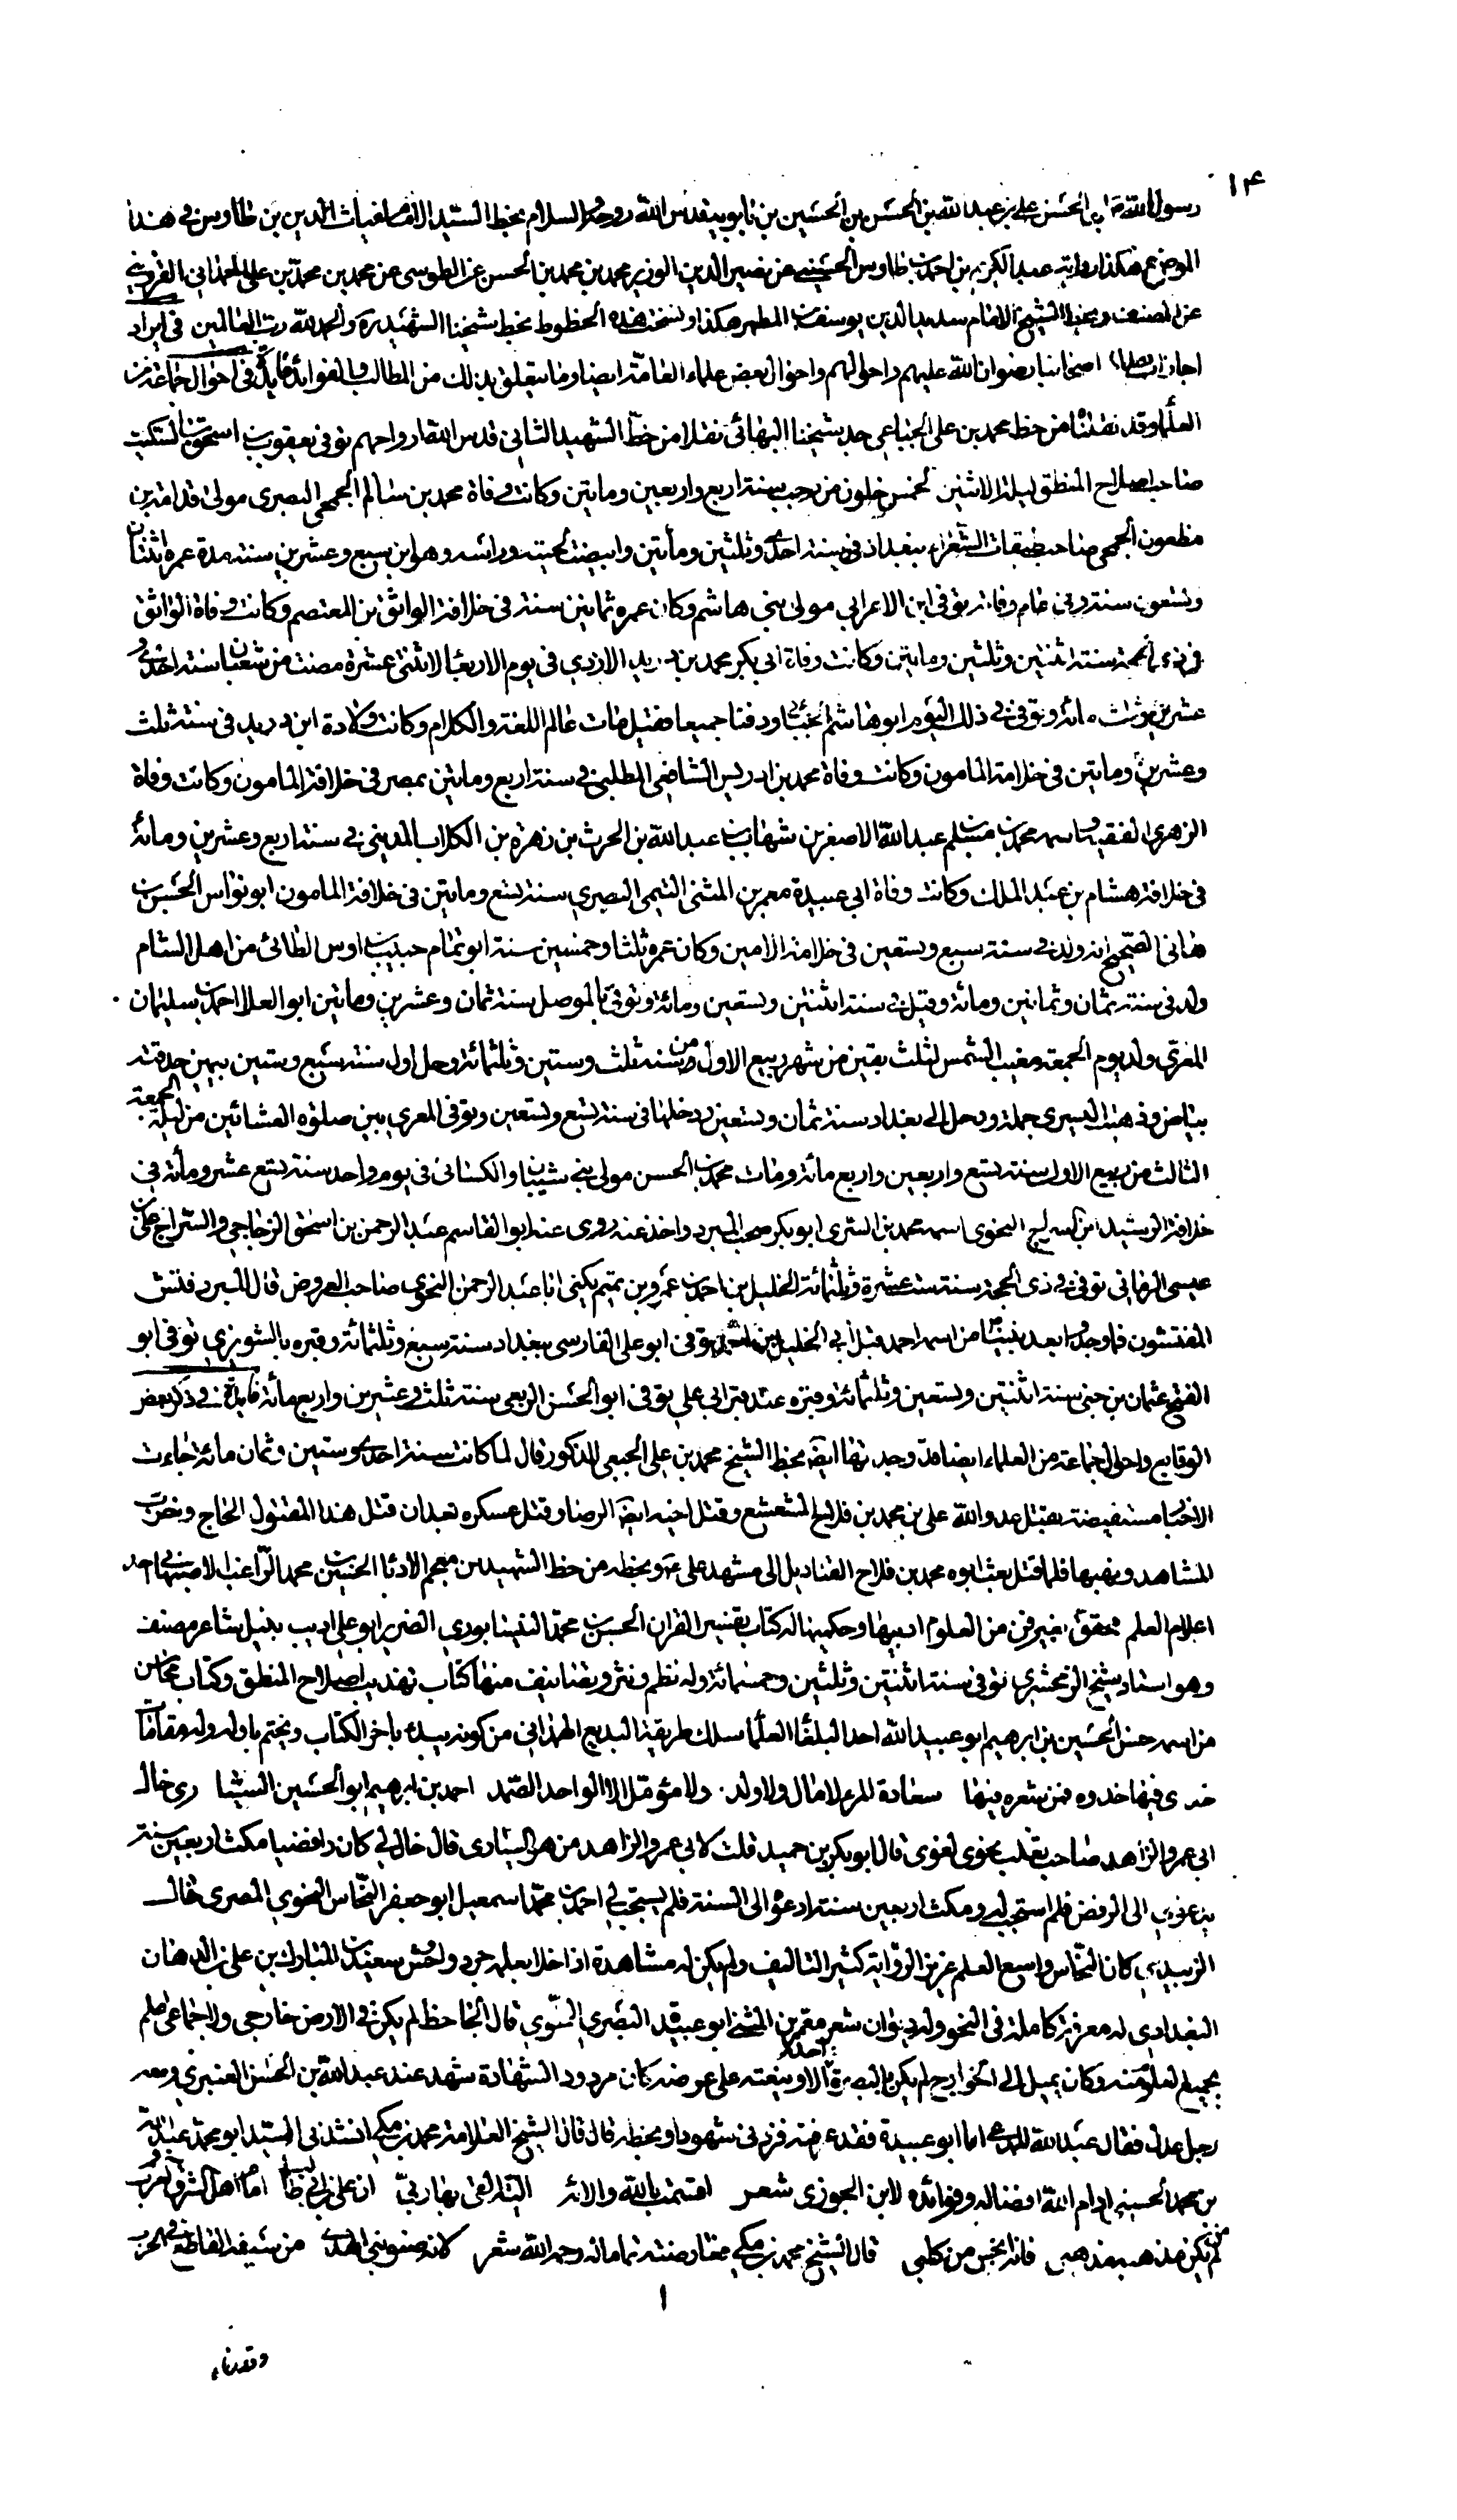 ١۴
رسول الله ابى الحسن على بن عبد الله بن الحسن بن الحسين بن بابويه قدس الله روحه والسلام بخط السيد الامام غياث الدين بن طاوس فى هذا
الموضع هكذا رواية عبد الكريم بن احمد بن طاوس الحسينى عن نصير الدين الوزير محمد بن محمد بن الحسن عز الطوسى عن محمد بن محمد بن على الحمدانى القزوينى
عن المصنف وبخط الشيخ الامام سديد الدين يوسف بن المطهر هكذا ولنختم هذه الخطوط بخط شيخنا الشهيد ره والحمد لله رب العالمين فى ايراد
اجازات اصحابنا رضوان الله عليهم واحوالهم واحوال بعض علماء العامة ايضا وما يتعلق بذلك من المطالب والفوائد فايدة فى احوال جماعة من
العلماء وقد نقلناه من خط محمد بن على الجباعى جد شيخنا البهائى نقلا من خط الشهيد الثانى قدس الله ارواحهم توفى يعقوب بن اسحق السكيت
صاحب اصلاح المنطق ليلة الاثنين لخمس خلون من رجب سنة اربع واربعين ومايتين وكانت وفاة محمد بن سالم الجمحى البصرى مولى قدامة بن
مظعون الجمحى صاحب طبقات الشعراء ببغداد فى سنة احدى وثلثين ومأتين وابيضت لحيته وراسه وهو ابن سبع وعشرين سنة مدة عمره اثنتان
وتسعون سنة وفى عام وفاته توفى ابن الاعرابى مولى بنى هاشم وكان عمره ثمانين سنة فى خلافة الواثق بن المعتصم وكانت وفاة الواثق
فى ذى الحجة سنة اثنتين وثلثين ومايتين وكانت وفاة ابى بكر محمد بن دريد الازدى فى يوم الاربعا لاثنتى عشرة مضت من شعبان سنة احدى و
عشرين وثلث مائة وتوفى فى ذلك اليوم ابو هاشم الجبائى ودفنا جميعا فقيل مات عالم اللغة والكلام وكانت ولادة ابن دريد فى سنة ثلث
وعشرين ومايتين فى خلافة المامون وكانت وفاة محمد بن ادريس الشافعى المطلبى فى سنة اربع ومايتين بمصر فى خلافة المامون وكانت وفاة
الزهرى الفقيه واسمه محمد بن مسلم عبد الله الاصغر بن شهاب بن عبد الله بن الحرث بن زهرة بن الكلاب المدينى فى سنة اربع وعشرين ومائة
فى خلافة هشام بن عبد الملك وكانت وفاة ابى عبيدة معمر بن المثنى التيمى البصرى سنة تسع ومايتين فى خلافة المامون ابو نواس الحسن بن
هانى الصحيح انه ولد فى سنة سبع وتسعين فى خلافة الامين وكان عمره ثلثا وخمسين سنة ابو تمام حبيب بن اوس الطائى من اهل الشام
ولد فى سنة ثمان وثمانين ومائة وقيل فى سنة اثنتين وتسعين ومائة وتوفى بالموصل سنة ثمان وعشرين ومايتين ابو العلا احمد بن سليمان
المعرى ولد يوم الجمعة مغيب الشمس لثلث بقين من شهر ربيع الاول من سنة ثلث وستين وثلثمائة وحل اول سنة سبع وستين بيمنى حدقته
بياض وذهبت اليسرى جملة ورحل الى بغداد سنة ثمان وتسعين ودخلها فى سنة تسع وتسعين وتوفى المعرى بين صلوة العشائين من ليلة الجمعة
الثالث من ربيع الاول سنة تسع واربعين واربع مائة ومات محمد بن الحسن مولى بنى شيبان والكسائى فى يوم واحد سنة تسع عشر ومأنة فى
خلافة الرشيد ابن السراج النحوى اسمه محمد بن السرى ابو بكر صحب المبرد واخذ عنه روى عنه ابو القاسم عبد الرحمن بن اسحق الزجاجى والسراج على بن
عيسى الرمانى توفى فى ذى الحجة سنة ست عشرة وثلثمائة الخليل بن احمد بن عمرو بن تميم يكنى ابا عبد الرحمن النحوى صاحب العروض قال المبرد فتش
المفتشون فما وجدوا بعد نبينا من اسمه احمد قبل ابى الخليل بن احمد توفى ابو على الفارسى ببغداد سنة سبع وثلثمائة وقبره بالشونزى توفى ابو
الفتح عثمان بن جنى سنة اثنتين وتسعين وثلثمائة وقبره عند قبر ابى على توفى ابو الحسن الربعى سنة ثلث وعشرين واربع مائة فايدة فى ذكر بعض
الوقايع واحوال جماعة من العلماء ايضا قد وجدتها ايضا بخط الشيخ محمد بن على الجبعى المذكور قال لما كانت سنة احدى وستين وثمان مائة جاءت
الاخبار مستفيضة بقتل عدو الله على بن محمد بن فلاح المشعشع وقتل اخيه ايضا الرضا وقتل عسكره بعد ان قتل هذا المقتول الحاج وخرب
المشاهد ونهبها فلما قتل بعث ابوه محمد بن فلاح القناديل الى مشهد على ع وبخطه من خط الشهيد من معجم الادبا الحسين بن محمد الراغب الاصبهانى احد
اعلام العلم محقق بغير فن من العلوم اديبها وحكيمها له كتاب تفسير القران الحسن بن محمد النيشابورى الضرير ابو على اديب نبيل شاعر مصنف
وهو استاد شيخ الزمخشرى توفى سنة اثنتين وثلثين وخمسمائة وله نظم ونثر وتصانيف منها كتاب تهذيب اصلاح المنطق وكتاب محاسن
من اسمه حسن الحسين بن ابرهيم ابو عبيد الله احد البلغا العلما سلك طريقة البديع الهمدانى من كونه يبدء باخر الكتاب ويختم باوله وله مقامات
حذى فيها حذوه فمن شعره فيها سعادة المرء لا مال ولا ولد ولا مؤمل الا الواحد الصمد احمد بن ابرهيم ابو الحسين السيارى خال
ابى عمرو الزاهد صاحب ثعلب نحوى لغوى قال ابو بكر بن حميد قلت لابى عمرو الزاهد من هو السيارى قال خال لى كان رافضيا مكث اربعين سنة
يدعونى الى الرفض فلم استجب له ومكث اربعين سنة ادعوه الى السنة فلم يستجب لى احمد بن محمد اسمعيل ابو جعفر النحاس النحوى المصرى قال
الزبيدى كان النحاس واسع العلم غزير الرواية كثير التاليف ولم يكن له مشاهدة اذا خلا بعلمه جود واحسن سعيد بن المبارك بن على بن الدهان
البغدادى له معرفة كاملة فى النحو وله ديوان شعر معمر بن المثنى ابو عبيدة البصرى النحوى قال الجاحظ لم يكن فى الارض خارجى ولا جماعى اعلم
بجميع العلوم منه وكان يميل الى الخوارج لم يكن بالبصرة احد الا ويغتم على عرضه كان مردود الشهادة شهد عند عبد الله بن الحسن العنبرى ومعه
رجل عدل فقال عبد الله للمدعى اما ابو عبيدة فقد عرفته فزدنى شهودا وبخطه قال قال الشيخ العلامة محمد بن مكى انشدنى السيد ابو محمد عبد الله
بن محمد الحسينى ادام الله افضاله وفوائده لابن الجوزى شعر اقسمت بالله والائه الية القى بها ربى ان على بن ابى طالب امام اهل الشرق والغرب
من لم يكن مذهبه مذهبى فانه انجس من كلبى قال الشيخ محمد بن مكى معارضته تماما له رحمه الله شعر لانه صنو نبى الهدى من سيفه القاطع فى الحرب
وقدناء